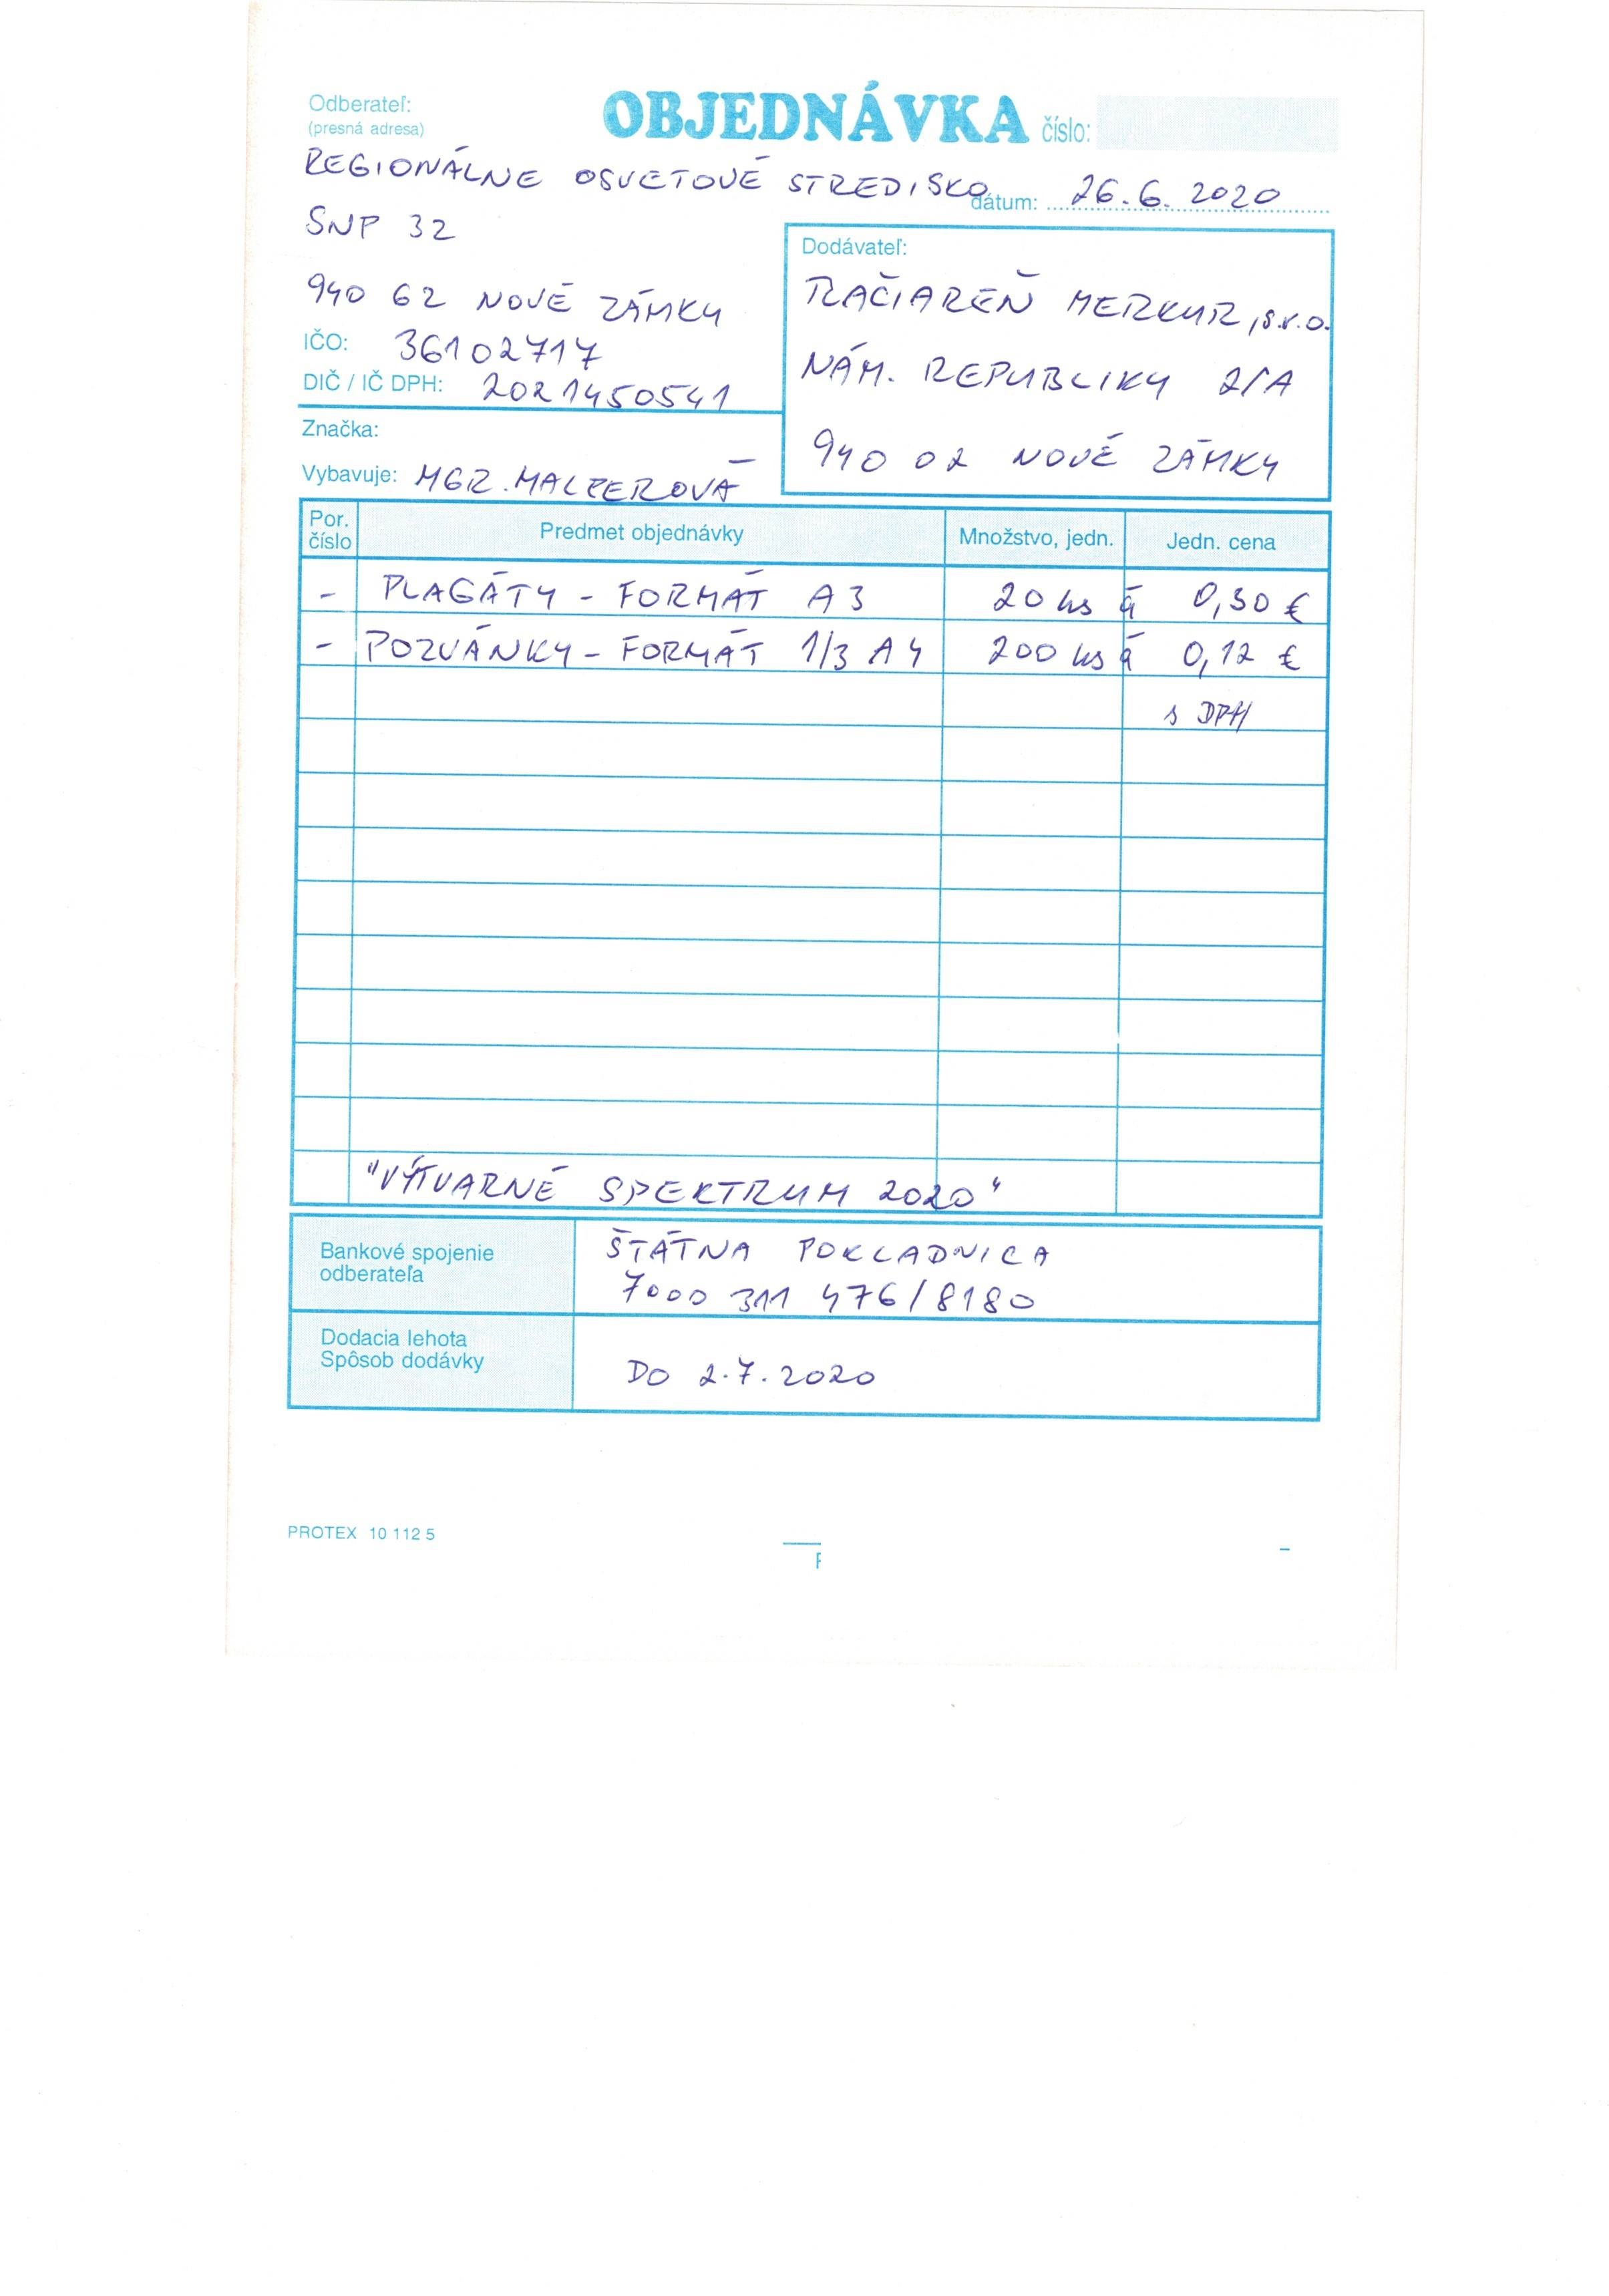 Odberateľ:
(presná adresa)
OBJEDNÁVKA číslo:
REGIONÁLNE OSVETOVÉ STREDISKO
dátum: 26.6.2020
SNP 32
940 62 NOVÉ ZÁMKY
IČO: 36102717
DIČ / IČ DPH: 2021450541
Značka:
Vybavuje: MGR.
Dodávateľ:
TLAČIAREŇ MERKUR, s.r.o.
NÁM. REPUBLIKY 2/A
940 02 NOVÉ ZÁMKY
Por. číslo Predmet objednávky Množstvo, jedn. Jedn. cena
- PLAGÁTY - FORMÁT A3 20 ks á €
- POZVÁNKY - FORMÁT 1/3 A4 200 ks á 0,12 €
s DPH
"VÝTVARNÉ SPEKTRUM 2020"
Bankové spojenie
odberateľa
ŠTÁTNA POKLADNICA
7000 311 476/8180
Dodacia lehota
Spôsob dodávky
DO 2.7.2020
PROTEX 10 112 5